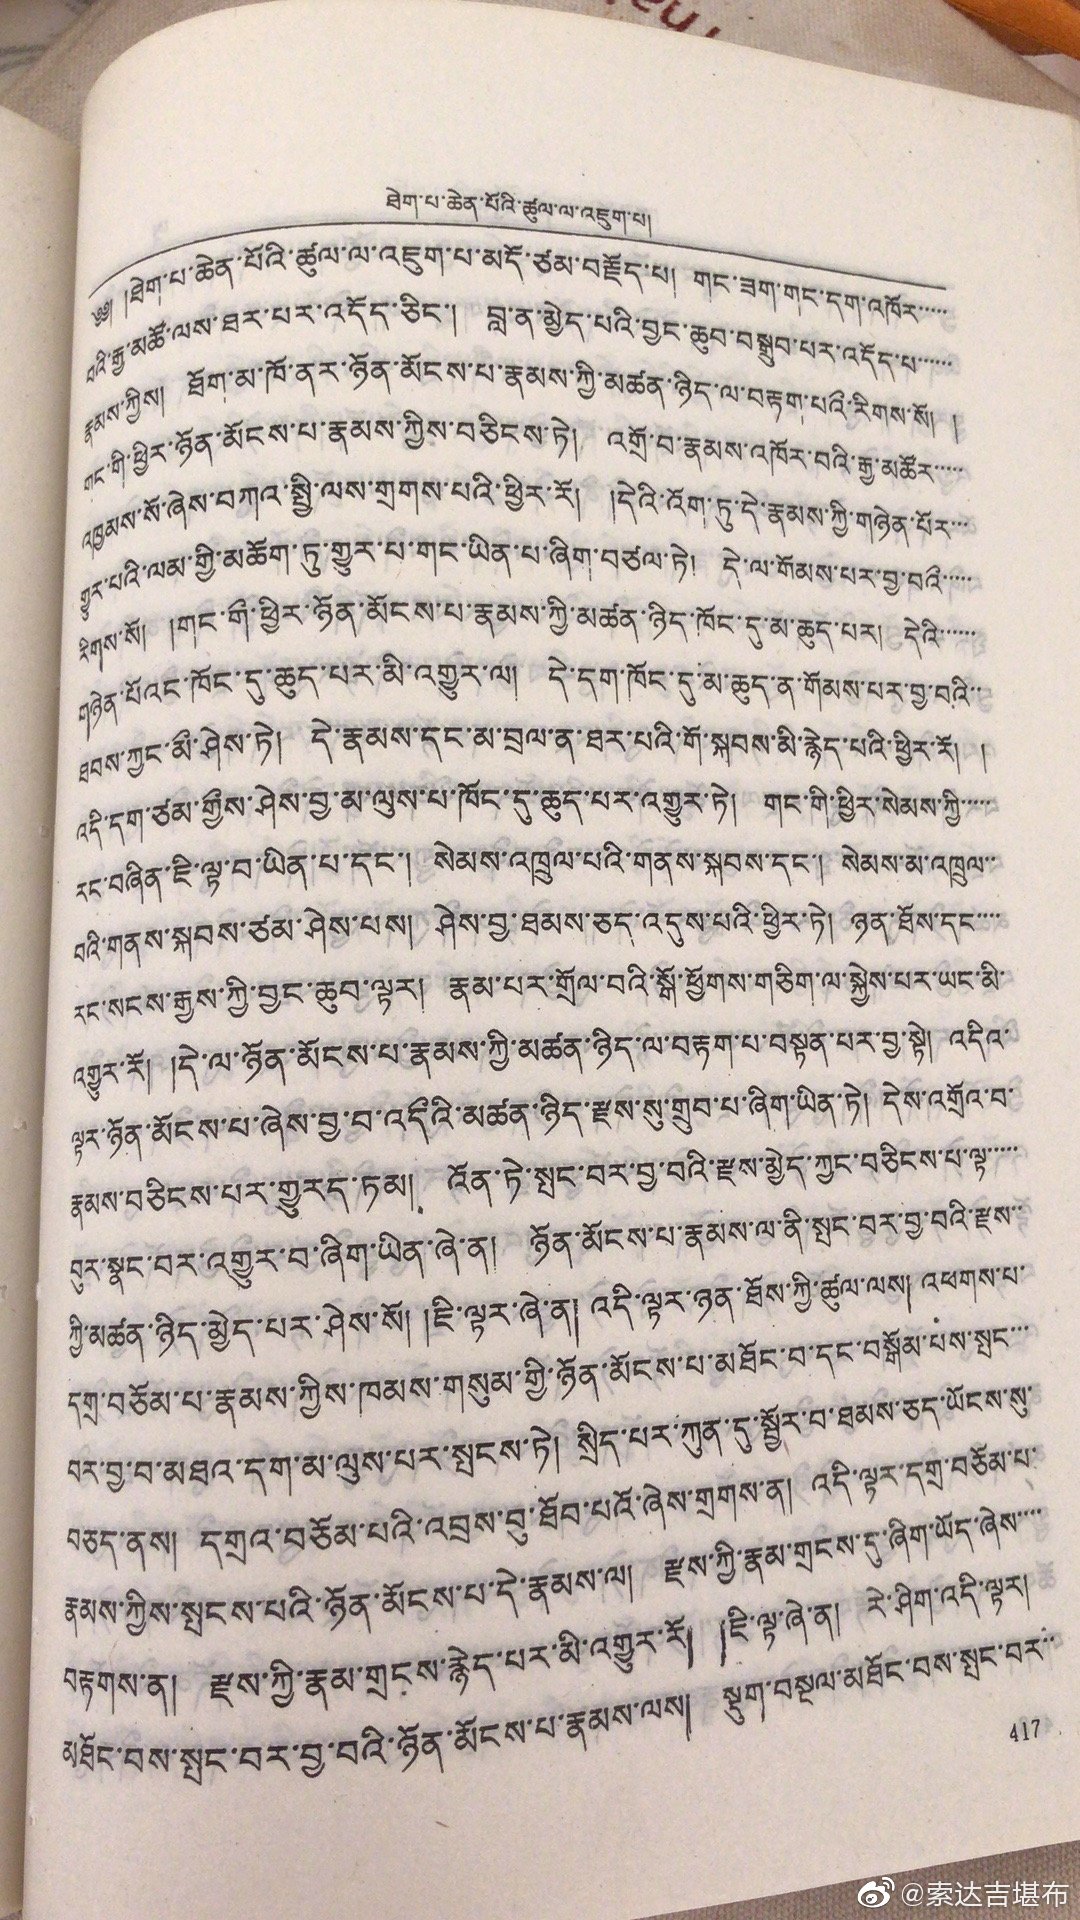 ཐེག་པ་ཆེན་པོའི་ཚུལ་ལ་འཇུག་པ།
༄༅། །ཐེག་པ་ཆེན་པོའི་ཚུལ་ལ་འཇུག་པ་མདོ་ཙམ་བརྗོད་པ། གང་ཟག་གང་དག་འཁོར་····
བའི་རྒྱ་མཚོ་ལས་ཐར་པར་འདོད་ཅིང་། བླ་ན་མྱེད་པའི་བྱང་ཆུབ་བསྒྲུབ་པར་འདོད་པ་····
རྣམས་ཀྱིས། ཐོག་མ་ཁོ་ནར་ཉོན་མོངས་པ་རྣམས་ཀྱི་མཚན་ཉིད་ལ་བརྟག་པའི་རིགས་སོ། །
གང་གི་ཕྱིར་ཉོན་མོངས་པ་རྣམས་ཀྱིས་བཅིངས་ཏེ། འགྲོ་བ་རྣམས་འཁོར་བའི་རྒྱ་མཚོར་····
འཁྱམས་སོ་ཞེས་བཀའ་སྤྱི་ལས་གྲགས་པའི་ཕྱིར་རོ། །དེའི་འོག་ཏུ་དེ་རྣམས་ཀྱི་གཉེན་པོར་···
གྱུར་པའི་ལམ་གྱི་མཆོག་ཏུ་གྱུར་པ་གང་ཡིན་པ་ཞིག་བཙལ་ཏེ། དེ་ལ་གོམས་པར་བྱ་བའི་····
རིགས་སོ། །གང་གི་ཕྱིར་ཉོན་མོངས་པ་རྣམས་ཀྱི་མཚན་ཉིད་ཁོང་དུ་མ་ཆུད་པར། དེའི་····
གཉེན་པོའང་ཁོང་དུ་ཆུད་པར་མི་འགྱུར་ལ། དེ་དག་ཁོང་དུ་མ་ཆུད་ན་གོམས་པར་བྱ་བའི་··
ཐབས་ཀྱང་མི་ཤེས་ཏེ། དེ་རྣམས་དང་མ་བྲལ་ན་ཐར་པའི་གོ་སྐབས་མི་རྙེད་པའི་ཕྱིར་རོ། །
འདི་དག་ཙམ་གྱིས་ཤེས་བྱ་མ་ལུས་པ་ཁོང་དུ་ཆུད་པར་འགྱུར་ཏེ། གང་གི་ཕྱིར་སེམས་ཀྱི་····
རང་བཞིན་ཇི་ལྟ་བ་ཡིན་པ་དང་། སེམས་འཁྲུལ་པའི་གནས་སྐབས་དང་། སེམས་མ་འཁྲུལ་··
བའི་གནས་སྐབས་ཙམ་ཤེས་པས། ཤེས་བྱ་ཐམས་ཅད་འདུས་པའི་ཕྱིར་ཏེ། ཉན་ཐོས་དང་····
རང་སངས་རྒྱས་ཀྱི་བྱང་ཆུབ་ལྟར། རྣམ་པར་གྲོལ་བའི་སྒོ་ཕྱོགས་གཅིག་ལ་སྐྱེས་པར་ཡང་མི་
འགྱུར་རོ། །དེ་ལ་ཉོན་མོངས་པ་རྣམས་ཀྱི་མཚན་ཉིད་ལ་བརྟག་པ་བསྟན་པར་བྱ་སྟེ། འདིའ་
ལྟར་ཉོན་མོངས་པ་ཞེས་བྱ་བ་འདིའི་མཚན་ཉིད་རྫས་སུ་གྲུབ་པ་ཞིག་ཡིན་ཏེ། དེས་འགྲོའ་བ་
རྣམས་བཅིངས་པར་གྱུརད་ཏམ། འོན་ཏེ་སྤང་བར་བྱ་བའི་རྫས་མྱེད་ཀྱང་བཅིངས་པ་ལྟ་····
བུར་སྣང་བར་འགྱུར་བ་ཞིག་ཡིན་ཞེ་ན། ཉོན་མོངས་པ་རྣམས་ལ་ནི་སྤང་བར་བྱ་བའི་རྫས་··
ཀྱི་མཚན་ཉིད་མྱེད་པར་ཤེས་སོ། །ཇི་ལྟར་ཞེ་ན། འདི་ལྟར་ཉན་ཐོས་ཀྱི་ཚུལ་ལས། འཕགས་པ་
དགྲ་བཅོམ་པ་རྣམས་ཀྱིས་ཁམས་གསུམ་གྱི་ཉོན་མོངས་པ་མཐོང་བ་དང་བསྒོམ་པས་སྤང་···
བར་བྱ་བ་མཐའ་དག་མ་ལུས་པར་སྤངས་ཏེ། སྲིད་པར་ཀུན་དུ་སྦྱོར་བ་ཐམས་ཅད་ཡོངས་སུ་
བཅད་ནས། དགྲའ་བཅོམ་པའི་འབྲས་བུ་ཐོབ་པའོ་ཞེས་གྲགས་ན། འདི་ལྟར་དགྲ་བཅོམ་པ་
རྣམས་ཀྱིས་སྤངས་པའི་ཉོན་མོངས་པ་དེ་རྣམས་ལ། རྫས་ཀྱི་རྣམ་གྲངས་དུ་ཞིག་ཡོད་ཞེས་····
བརྟགས་ན། རྫས་ཀྱི་རྣམ་གྲངས་རྙེད་པར་མི་འགྱུར་རོ། །ཇི་ལྟ་ཞེ་ན། རེ་ཤིག་འདི་ལྟར།
མཐོང་བས་སྤང་བར་བྱ་བའི་ཉོན་མོངས་པ་རྣམས་ལས། སྡུག་བསྔལ་མཐོང་བས་སྤང་བར་··
417
@索达吉堪布